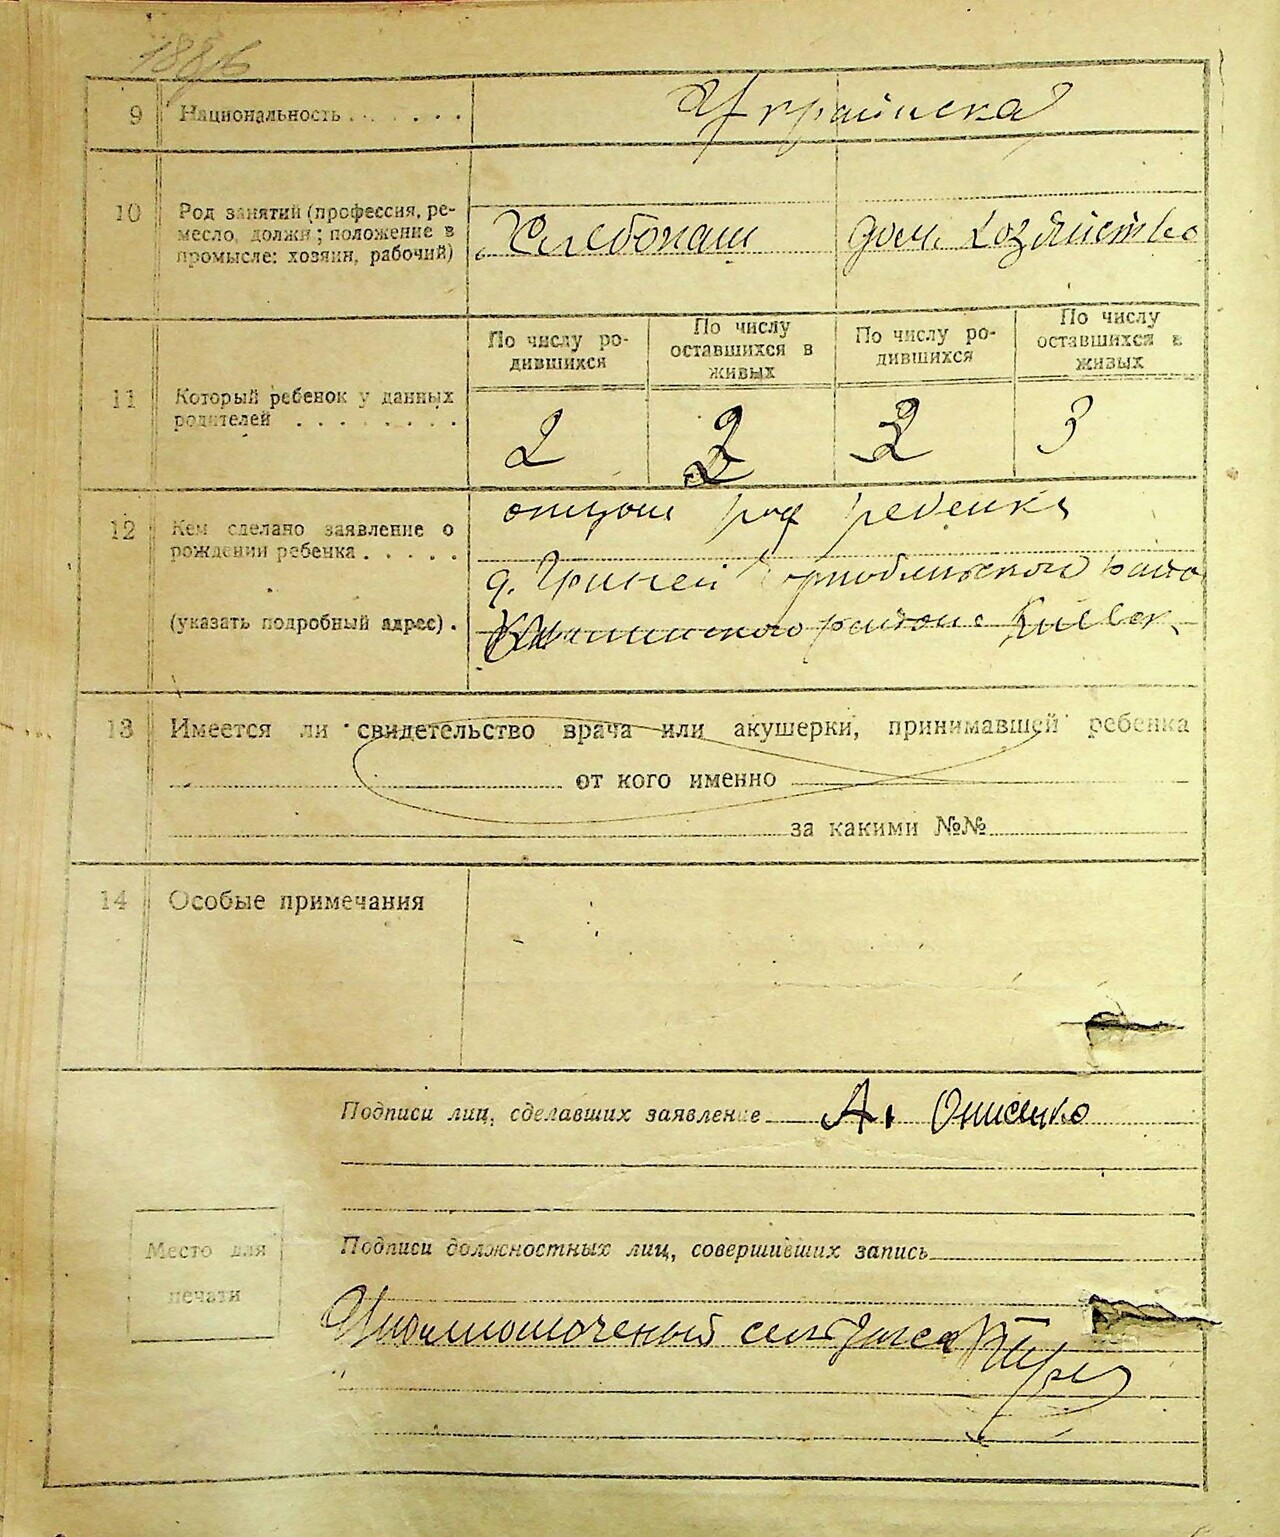 188об
9 Национальность . . . . . . Украинска
10 Род занятий (профессия, ре-
месло, должн; положение в
промысле: хозяин, рабочий)
Хлебопаш дом. хозяйство
11 Который ребенок у данных
родителей . . . . . . . .
По числу ро-
дившихся
По числу
оставшихся в
живых
По числу ро-
дившихся
По числу
оставшихся в
живых
2 2 3 3
12 Кем сделано заявление о
рождении ребенка . . . . .
(указать подробный адрес) .
отцом ребенка
д.
района Киевск
13 Имеется ли свидетельство врача или акушерки, принимавшей ребенка
от кого именно
за какими №№
14 Особые примечания
Подписи лиц, сделавших заявление А. Онисенко
Подписи должностных лиц, совершивших запись
Место для
печати
Уполномоченый